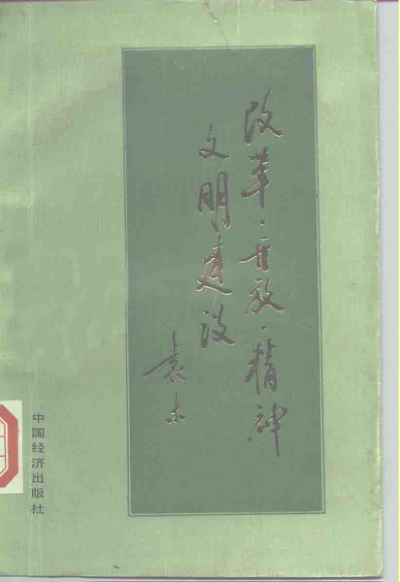 改革·开放·精神
文明建设
袁木
中国经济出版社